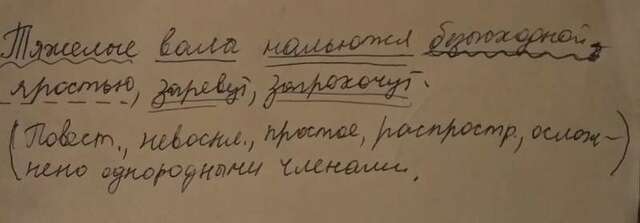 Тяжелые вала нальются безысходной
яростью, заревут, загрохочут.
(Повест., невоскл., простое, распростр., ослож-
нено однородными членами.